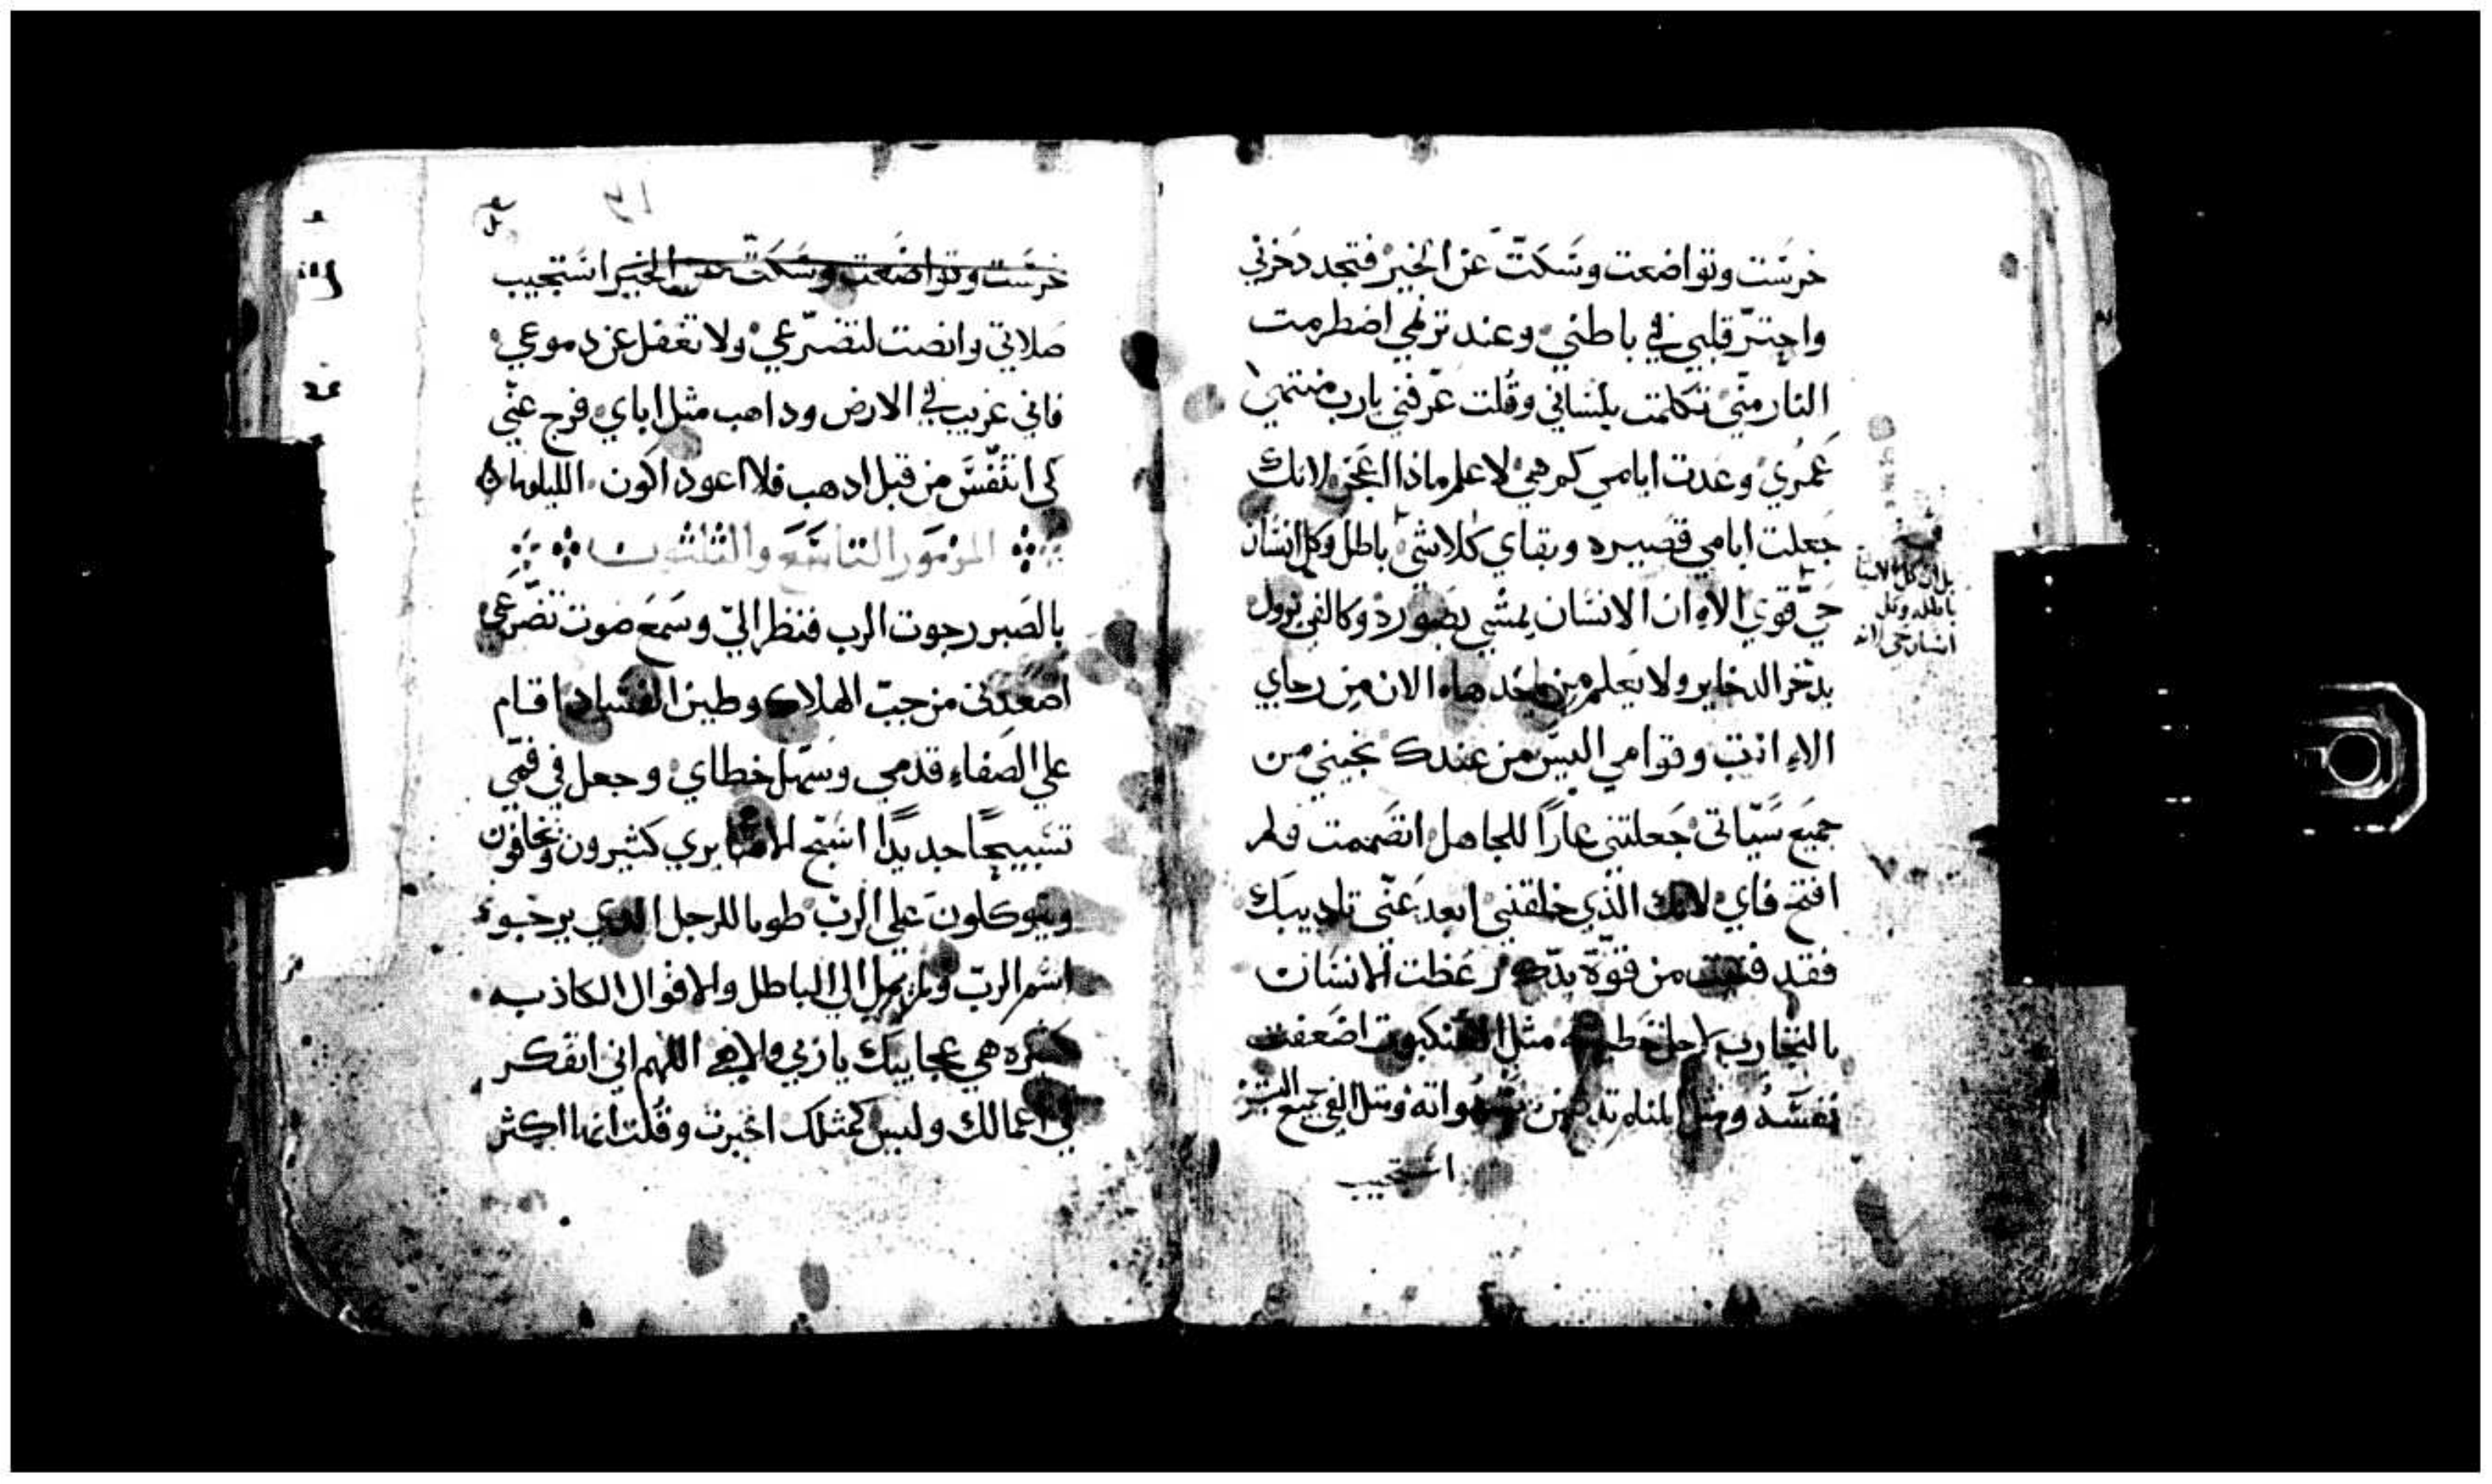 خرسَت وتواضعت وسَكتّ عن الخير فتجدد حَزني
واحترّ قلبي في باطني وعند ترنمي اضطرمت
النار منّي تكلمت بلسَاني وقُلت عَرّفني يارب منتهي
عَمُري وعَدت ايامي كم هي لاعلم ماذا اعَجَز لانك
جَعلت ايامي قصَيره وبقاي كلاشي باطل وكل انسَان
حَيّ قوي الاه ان الانسَان يمشي بصَوره وكالفي يزول
يدخر الدخاير ولا يَعلم من الان من رجاي
الاه انت وقوامي اليسَ من عندك نجيني من
جميَع سَيّاتي جَعلتني عَاراً للجاهل انصَممت فلم
افتح فاي لانك الذي خلقتني ابعد عَنّي تاديبك
فقد فنيت من قوّة يدّك وعَظت الانسَان
بالتجارب لاجل مثل العنكبوت اضَعفت
نفسَه ومثل شهواته ومثل الفي جميع البشر
استجيب
بل ان كل الاشيا
باطله وكل
انسَان حَي الاه
خرسَت وتواضَعت وسَكتّ عن الخيَر استجيب
صَلاتي وانصت لتضرّعي ولا تغفل عن دموعي
فاني غريب في الارض وداهب مثل اباي فرج عنّي
كي اتنفّسَ من قبل ادهب فلا اعود اكون الليلويا
المزمَور التاسَعَ والثلثون
بالصَبر رجوت الرب فنظر اليّ وسَمعَ صَوت تضرّعَي
اصَعَدني من جبّ الهلاك وطين الفسَاد اقام
علي الصَفاء قدمي وسَهّل خطاي وجعل في فمّي
تسَبيحًا جديدًا اسَبّح الاهنا يري كثيرون ويخافون
ويتوكلونَ علي الربّ طوبا للرجل الدي يرجَوا
اسَم الربّ ولم يمل الي الباطل والاقوال الكاذبه
كثيره هي عَجاييبك ياربي والاهي اللهم اني اتفَكر
في اعَمالك وليسَ كمثلك اخبرت وقُلت انها اكثر